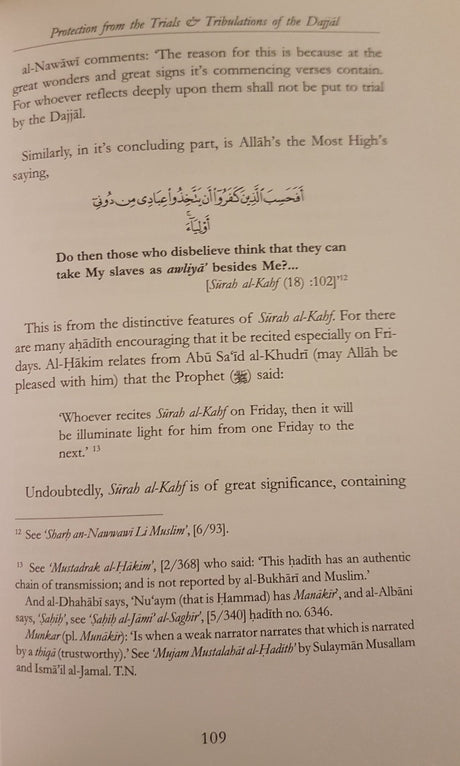 Protection from the Trials & Tribulations of the Dajjāl
al-Nawāwī comments: 'The reason for this is because at the
great wonders and great signs it's commencing verses contain.
For whoever reflects deeply upon them shall not be put to trial
by the Dajjāl.
Similarly, in it's concluding part, is Allāh's the Most High's
saying,
أَفَحَسِبَ ٱلَّذِينَ كَفَرُوٓا۟ أَن يَتَّخِذُوا۟ عِبَادِى مِن دُونِىٓ
أَوْلِيَآءَ
Do then those who disbelieve think that they can
take My slaves as awliyā' besides Me?...
[Sūrah al-Kahf (18) :102]'12
This is from the distinctive features of Sūrah al-Kahf. For there
are many aḥādīth encouraging that it be recited especially on Fri-
days. Al-Ḥākim relates from Abū Sa'īd al-Khudrī (may Allāh be
pleased with him) that the Prophet (ﷺ) said:
'Whoever recites Sūrah al-Kahf on Friday, then it will
be illuminate light for him from one Friday to the
next.' 13
Undoubtedly, Sūrah al-Kahf is of great significance, containing
12 See 'Sharḥ an-Nawwawī Li Muslim', [6/93].
13 See 'Mustadrak al-Ḥākim', [2/368] who said: 'This ḥadīth has an authentic
chain of transmission; and is not reported by al-Bukhārī and Muslim.'
And al-Dhahābī says, 'Nu'aym (that is Ḥammad) has Manākir', and al-Albāni
says, 'Ṣaḥīḥ', see 'Ṣaḥīḥ al-Jāmi' al-Saghir', [5/340] ḥadīth no. 6346.
Munkar (pl. Munākir): 'Is when a weak narrator narrates that which is narrated
by a thiqā (trustworthy).' See 'Mujam Mustalahāt al-Ḥadīth' by Sulaymān Musallam
and Ismā'il al-Jamal. T.N.
109